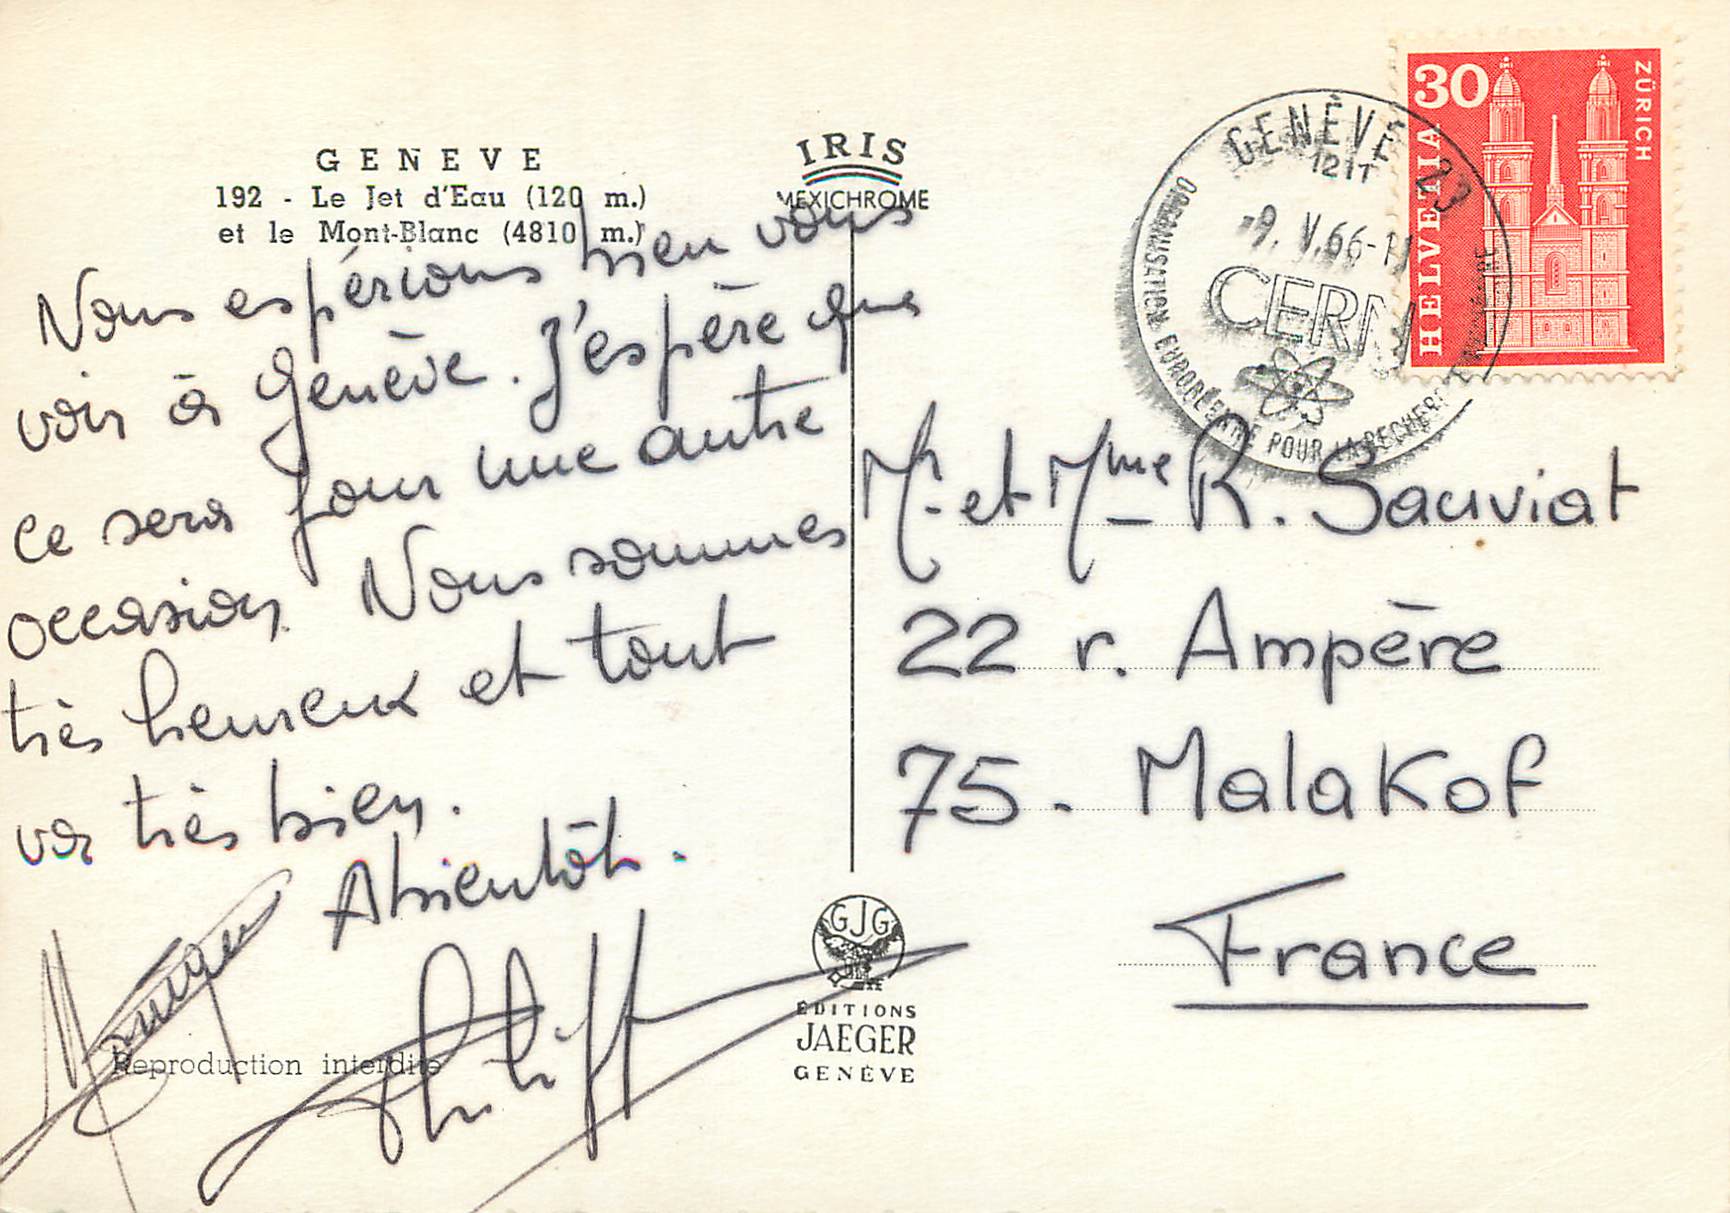 GENEVE
192 - Le Jet d'Eau (120 m.)
et le Mont-Blanc (4810 m.)
Nous espérions bien vous
voir à Genève. J'espère que
ce sera pour une autre
occasion. Nous sommes
très heureux et tout
va très bien.
Abientôt.
Reproduction interdite
IRIS
MEXICHROME
GJG
ÉDITIONS
JAEGER
GENÈVE
GENÈVE 23
1217
-9. V. 66-11
CERN
ORGANISATION EUROPÉENNE POUR LA RECHERCHE NUCLÉAIRE
30
HELVETIA
ZÜRICH
Mr. et Mme R. Sauviat
22 r. Ampère
75. Malakof
France